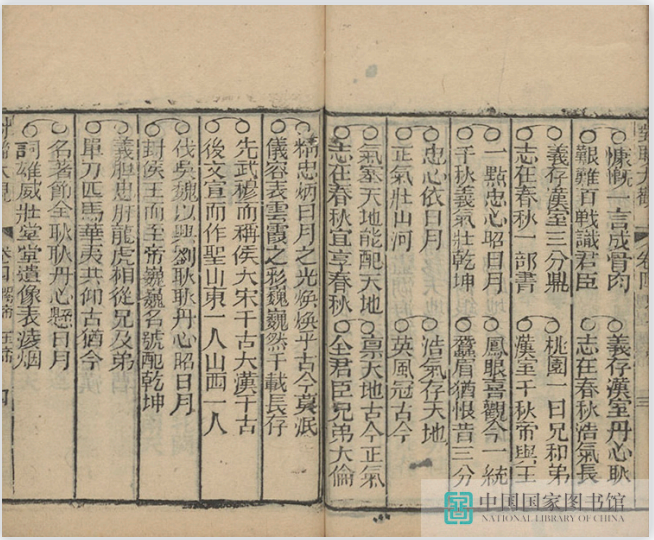 對聯大觀 卷四 三
慷慨一言成骨肉 義存漢室丹心耿
艱難百戰識君臣 志在春秋浩氣長
義存漢室三分鼎 桃園一日兄和弟
志在春秋一部書 漢室千秋帝與王
一點忠心昭日月 鳳眼喜觀今一統
千秋義氣壯乾坤 蠶眉猶恨昔三分
忠心依日月 浩氣存天地
正氣壯山河 英風冠古今
氣塞天地能配天地 稟天地古今正氣
志在春秋宜享春秋 全君臣兄弟大倫
精忠炳日月之光煥煥乎古今莫泯
儀容表雲霞之彩巍巍然千載長存
先武穆而稱侯大宋千古大漢千古
後文宣而作聖山東一人山西一人
伐吳魏以興劉耿耿丹心昭日月
封侯王而至帝巍巍名號配乾坤
義膽忠肝龍虎相從兄及弟
單刀匹馬華夷共仰古猶今
名著節全耿耿丹心懸日月
詞雄威壯堂堂遺像表凌烟
對聯大觀 卷四 四
中国国家图书馆
NATIONAL LIBRARY OF CHINA